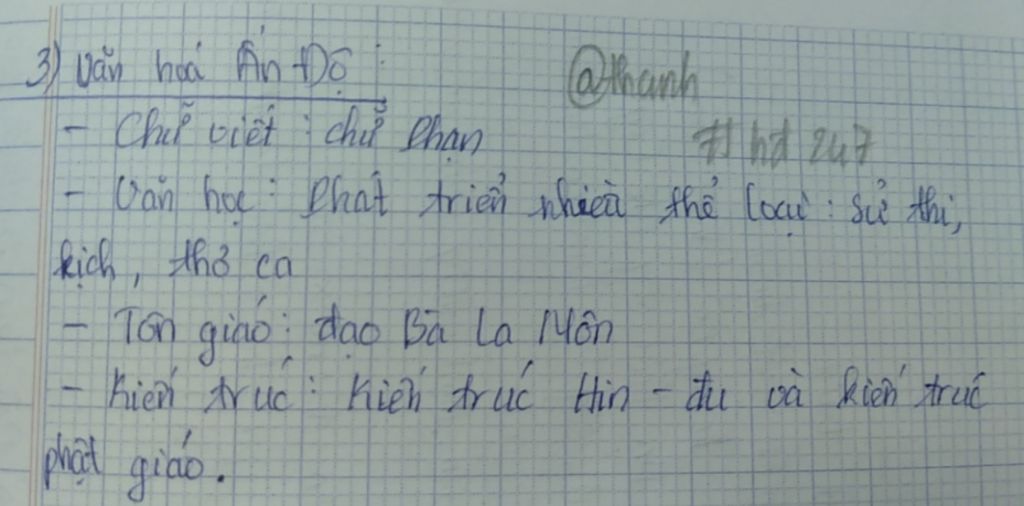 3) Văn hoá Ấn Độ :
@thanh
- Chữ viết : chữ Phạn
# hd 247
- Văn học : Phát triển nhiều thể loại : sử thi,
kịch, thơ ca
- Tôn giáo : đạo Bà La Môn
- Kiến trúc : Kiến trúc Hin - đu và kiến trúc
phật giáo.